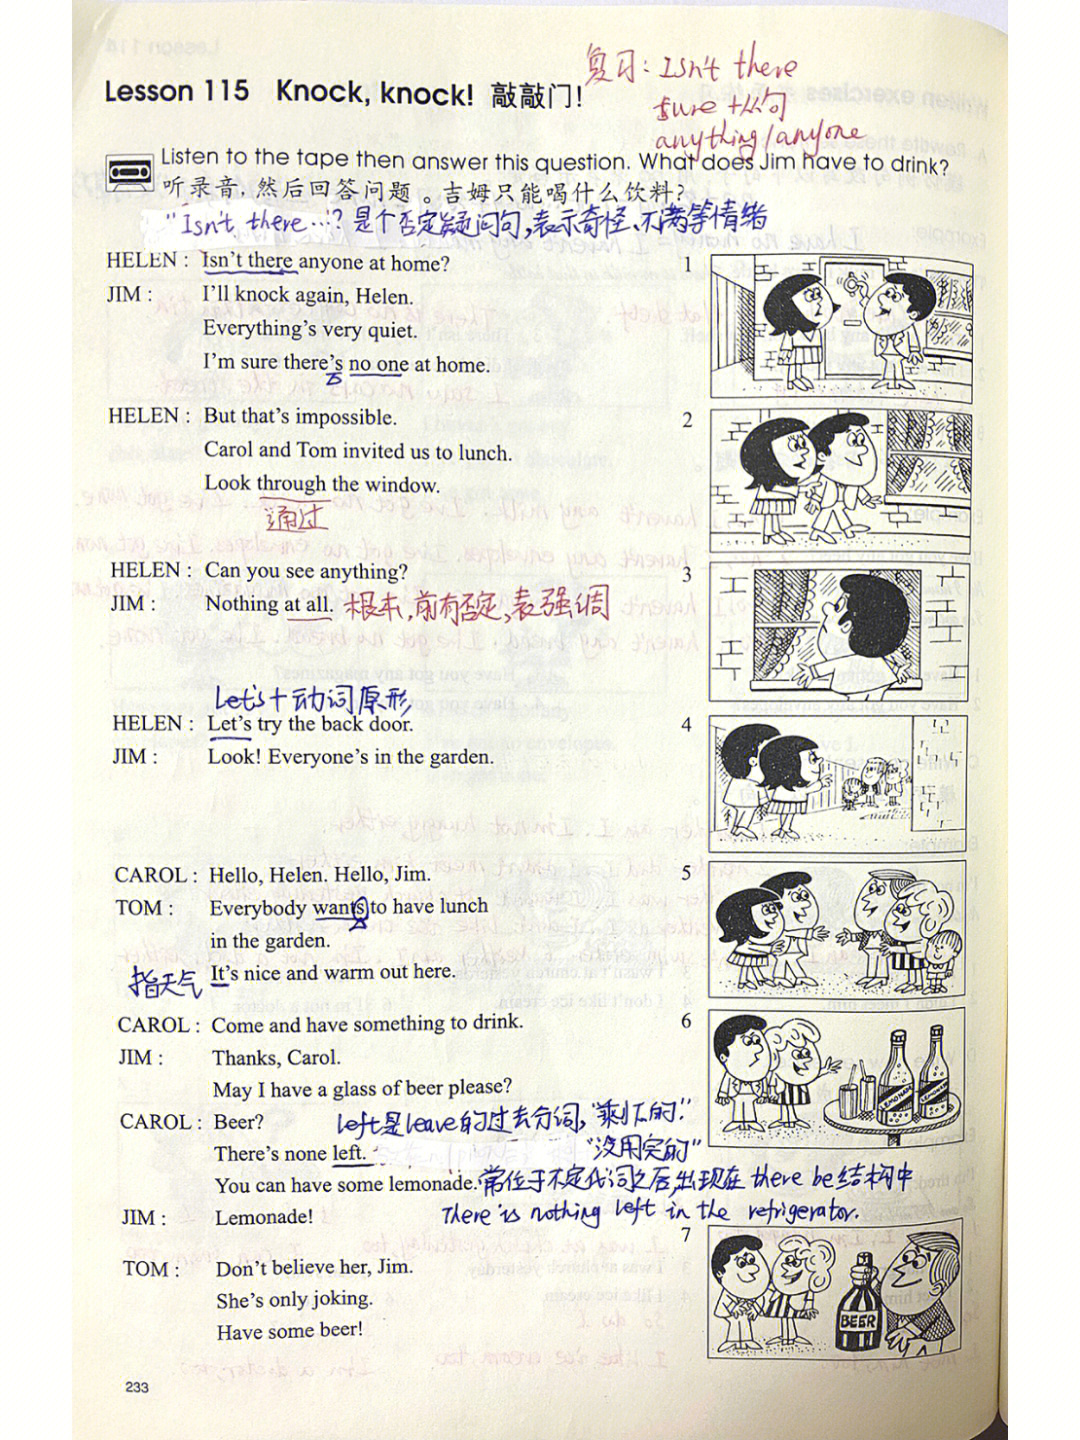 复习: Isn't there
sure + 从句
anything/anyone
Lesson 115 Knock, knock! 敲敲门!
Listen to the tape then answer this question. What does Jim have to drink?
听录音, 然后回答问题。吉姆只能喝什么饮料?
"Isn't there…? 是个否定疑问句,表示奇怪、不满等情绪
HELEN : Isn't there anyone at home?
1
JIM : I'll knock again, Helen.
Everything's very quiet.
I'm sure there's no one at home.
HELEN : But that's impossible.
2
Carol and Tom invited us to lunch.
Look through the window.
通过
HELEN : Can you see anything?
3
JIM : Nothing at all. 根本,前有否定,表强调
Let's + 动词原形
HELEN : Let's try the back door.
4
JIM : Look! Everyone's in the garden.
CAROL : Hello, Helen. Hello, Jim.
5
TOM : Everybody wants to have lunch
in the garden.
指天气 It's nice and warm out here.
CAROL : Come and have something to drink.
6
JIM : Thanks, Carol.
May I have a glass of beer please?
LEMONADE
LEMONADE
CAROL : Beer? left是leave的过去分词,"剩下的".
There's none left. "没用完的"
You can have some lemonade. 常位于不定代词之后,出现在 there be结构中
JIM : Lemonade! There is nothing left in the refrigerator.
7
TOM : Don't believe her, Jim.
She's only joking.
Have some beer!
BEER
233